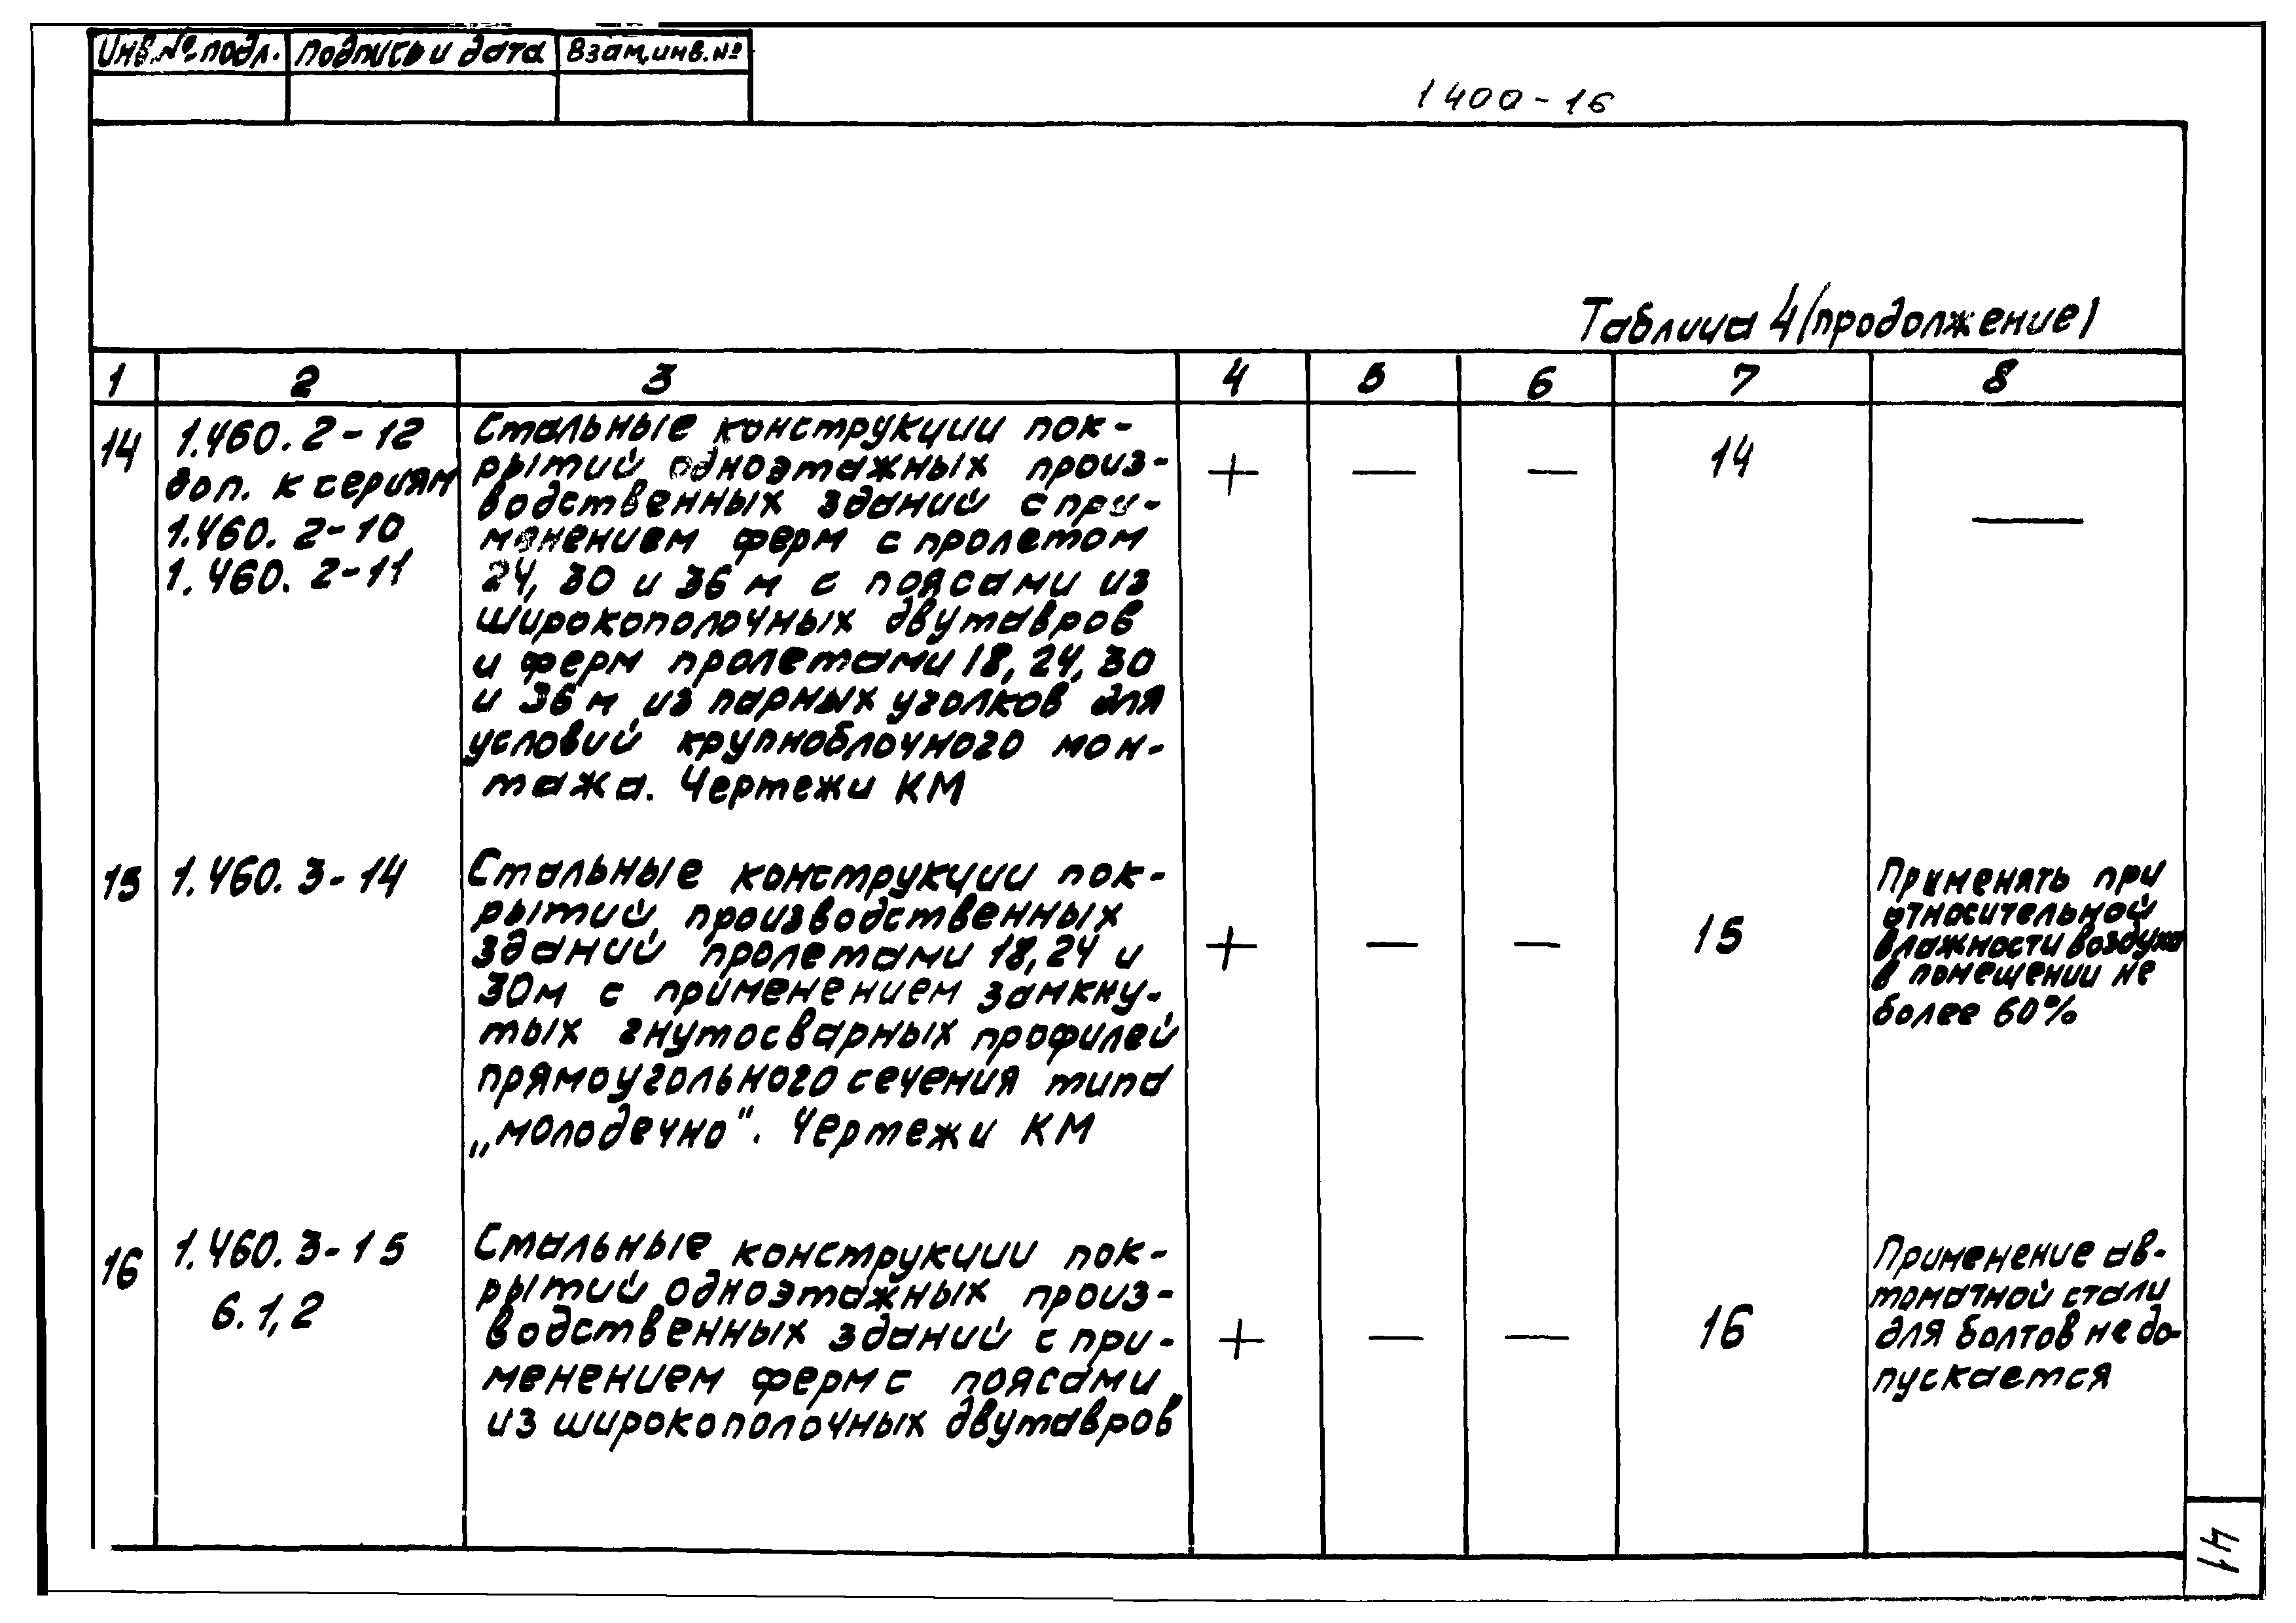 Инв.№подл. Подпись и дата Взам.инв.№
1400-16
Таблица 4 (продолжение)
1 2 3 4 5 6 7 8
14
1.460.2-12
доп. к сериям
1.460.2-10
1.460.2-11
Стальные конструкции пок-
рытий одноэтажных произ-
водственных зданий с при-
менением ферм с пролетом
24, 30 и 36 м с поясами из
широкополочных двутавров
и ферм пролетами 18, 24, 30
и 36 м из парных уголков для
условий крупноблочного мон-
тажа. Чертежи КМ
+ — — 14 —
15
1.460.3-14
Стальные конструкции пок-
рытий производственных
зданий пролетами 18, 24 и
30м с применением замкну-
тых гнутосварных профилей
прямоугольного сечения типа
„молодечно". Чертежи КМ
+ — — 15
Применять при
относительной
влажности воздуха
в помещении не
более 60%
16
1.460.3-15
в.1,2
Стальные конструкции пок-
рытий одноэтажных произ-
водственных зданий с при-
менением ферм с поясами
из широкополочных двутавров
+ — — 16
Применение ав-
томатной стали
для болтов не до-
пускается
41